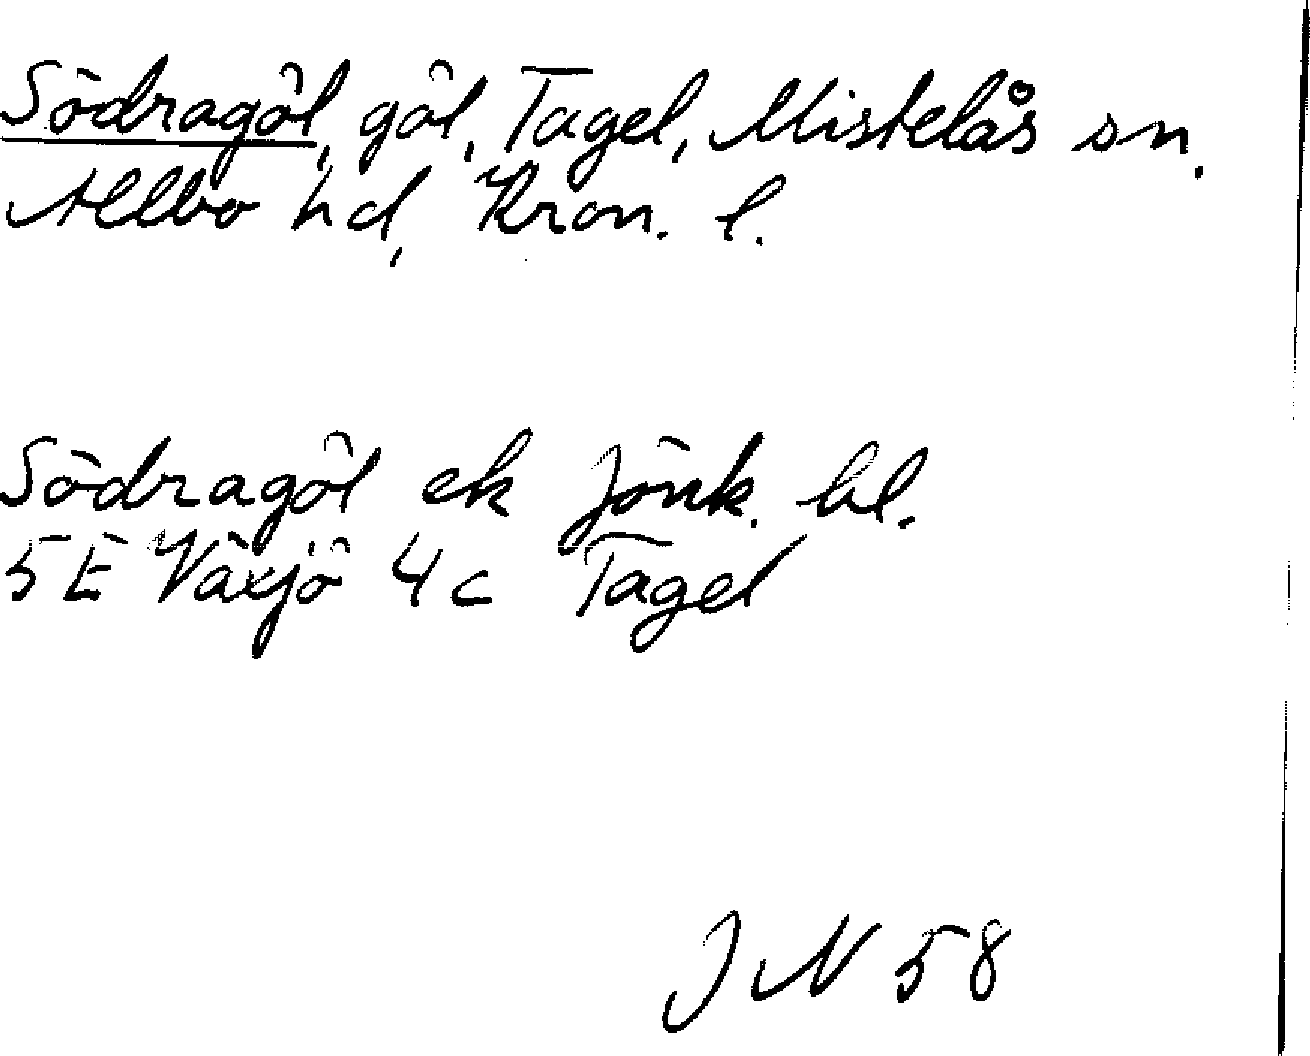 Södragöl, göl, Tagel, Mistelås sn.
Allbo hd, Kron. l.
Södragöl ek Jönk. bl.
5E Växjö 4c Tagel
JN 58